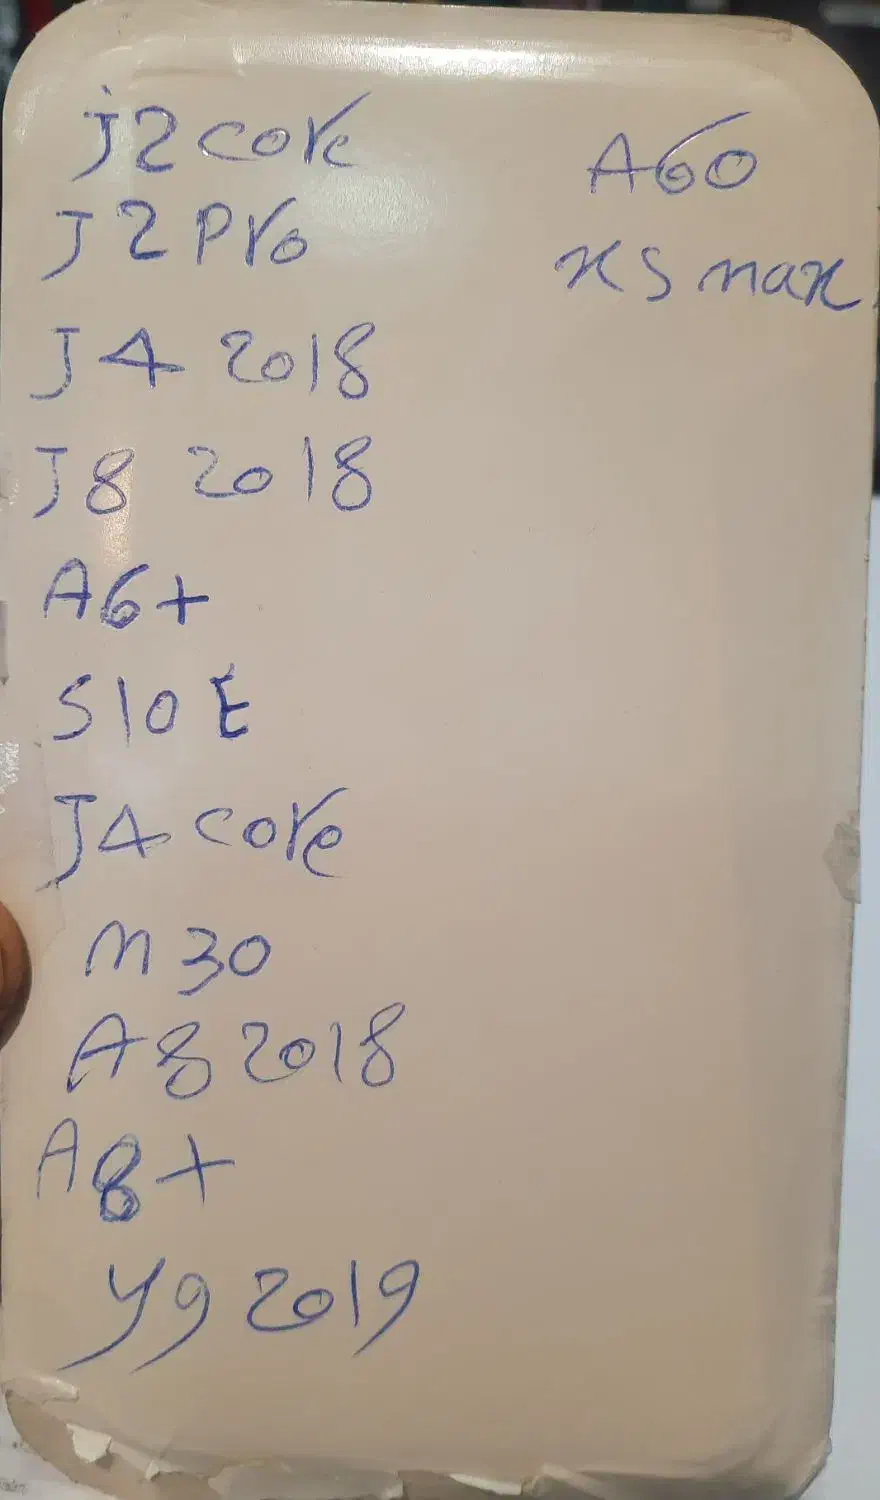 J2 core
J2 Pro
J4 2018
J8 2018
A6+
S10 E
J4 core
M30
A8 2018
A8+
Y9 2019
A60
XS max